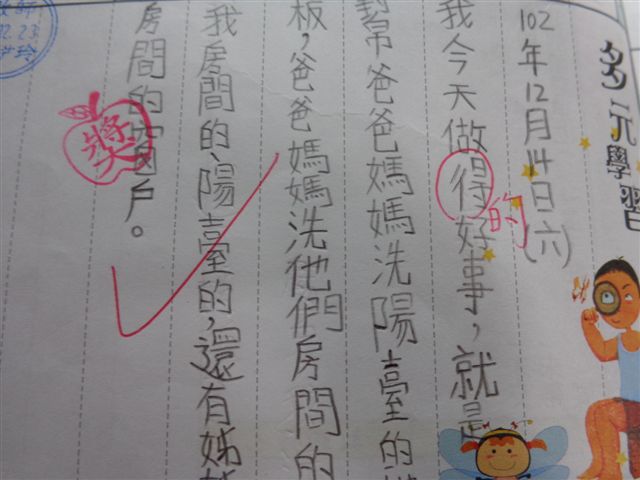 多元學習
102年12月14日(六)
我今天做得好事，就是
的
幫爸爸媽媽洗陽臺的
板，爸爸媽媽洗他們房間的
我房間的陽臺的，還有姊
房間的窗戶。
獎